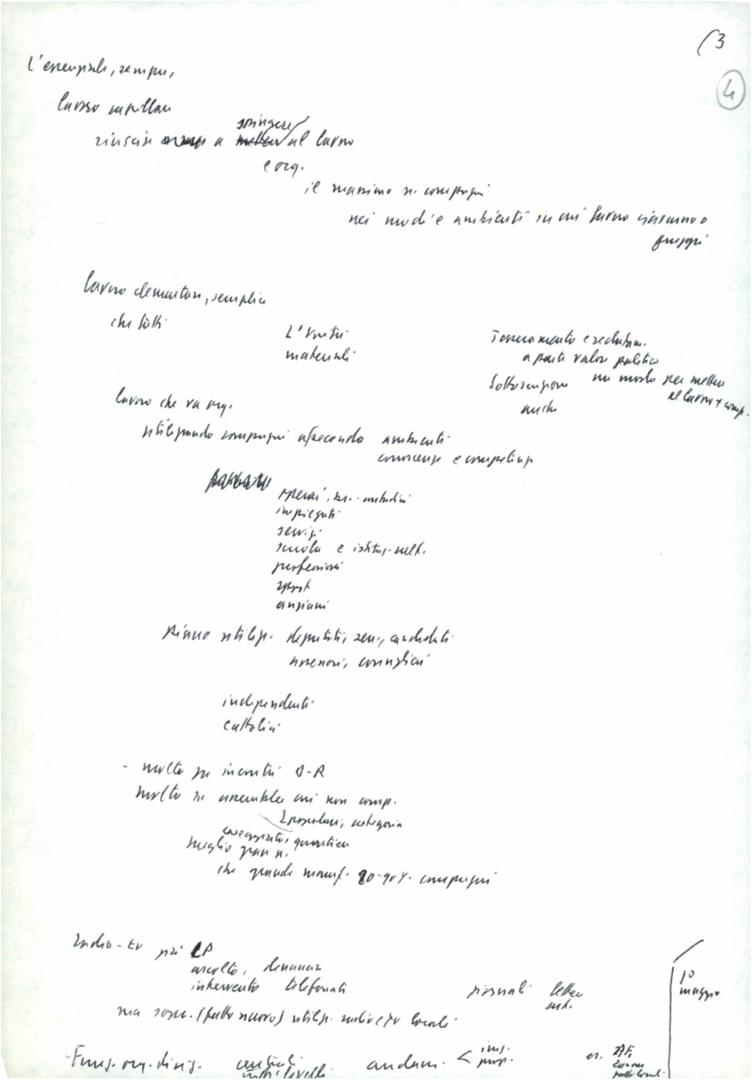 (3
4
L'essenziale, sempre,
lavoro capillare
riuscire a spingere al lavoro
e org.
il massimo n. compagni
nei modi e ambienti in cui lavoro ciascuno o
gruppi
lavoro elementare, semplice
che tutti
L'Unità
materiali
Tesseramento e reclutam.
a parte valore politico
Sottoscrizione un modo per mettere
al lavoro + comp.
anche
lavoro che va org.
utilizzando compagni a seconda ambienti
conoscenze e competenze
operai, contadini
impiegati
servizi
scuola e istituz. cult.
professioni
sport
anziani
Piano utilizz. deputati, sen., candidati
assessori, consiglieri
indipendenti
cattolici
- molto su incontri D-R
molto su assemblee con non comp.
popolari, categoria
caseggiato, quartiere
meglio
che grande manif. 80-90% compagni
Radio-tv più
ascolto, denunce
intervento telefonate
giornali lettere
ma sopr. (fatto nuovo) utilizz. radio e tv locali
1º
maggio
Funz. org. dirig. centrali